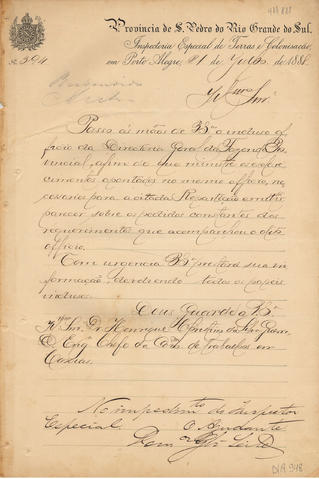 Provincia de S. Pedro do Rio Grande do Sul.
Inspectoria Especial de Terras e Colonisação
em Porto Alegre, 21 de Julho de 188
N 394
Illmo Snr.
Passo ás mãos de V.Sª o incluso of-
ficio da Directoria Geral da Fazenda Pro-
vincial, afim de que ministre os esclare-
cimentos apontados no mesmo officio, ne-
cessarios para a esta Repartição emittir
parecer sobre os pedidos constantes dos
requerimentos que acompanhou o dito
officio.
Com urgencia V.Sª prestará sua in-
formação, devolvendo todos os papeis
inclusos.
Deus Guarde a V.Sª
Snr. Dr. Henrique
Engº Chefe da Com. de Trabalhos em
Caxias.
No impedimto do Inspector
Especial
O Ajudante
DIA 948